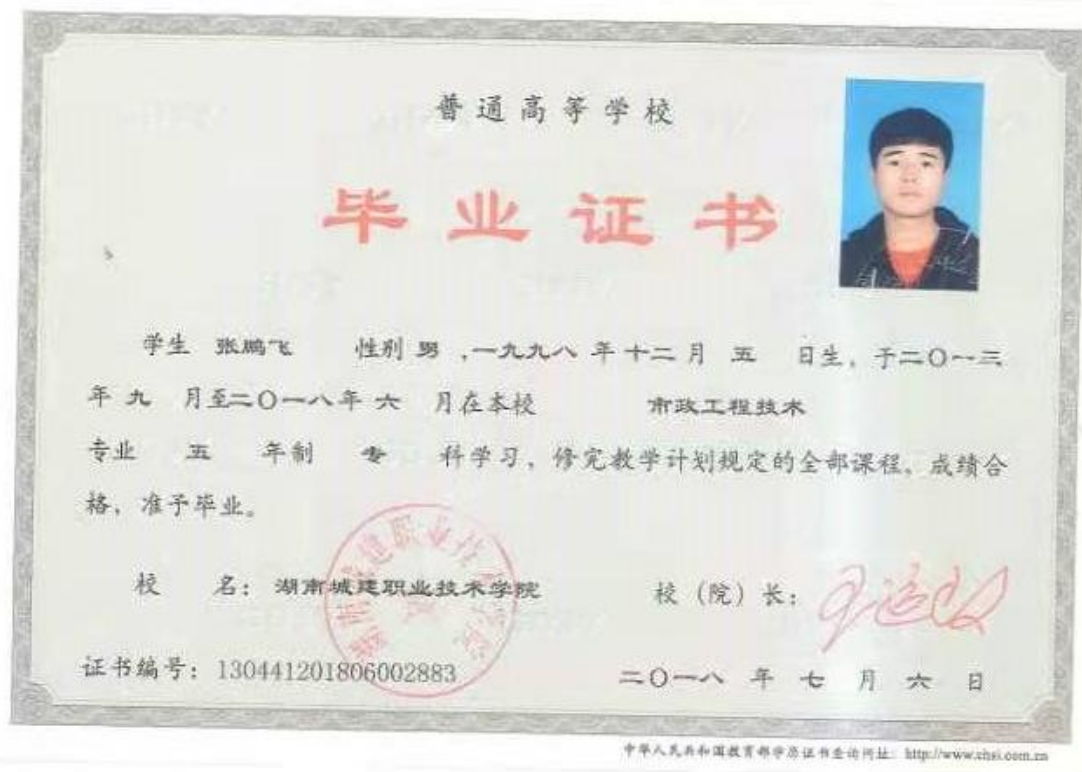 普通高等学校
毕业证书
学生 张鹏飞 性别 男 ,一九九八 年 十二 月 五 日生, 于二〇一三
年 九 月至二〇一八年 六 月在本校 市政工程技术
专业 五 年制 专 科学习, 修完教学计划规定的全部课程, 成绩合
格, 准予毕业。
校 名: 湖南城建职业技术学院 校 (院) 长:
证书编号: 130441201806002883 二〇一八 年 七 月 六 日
中华人民共和国教育部学历证书查询网址: http://www.chsi.com.cn